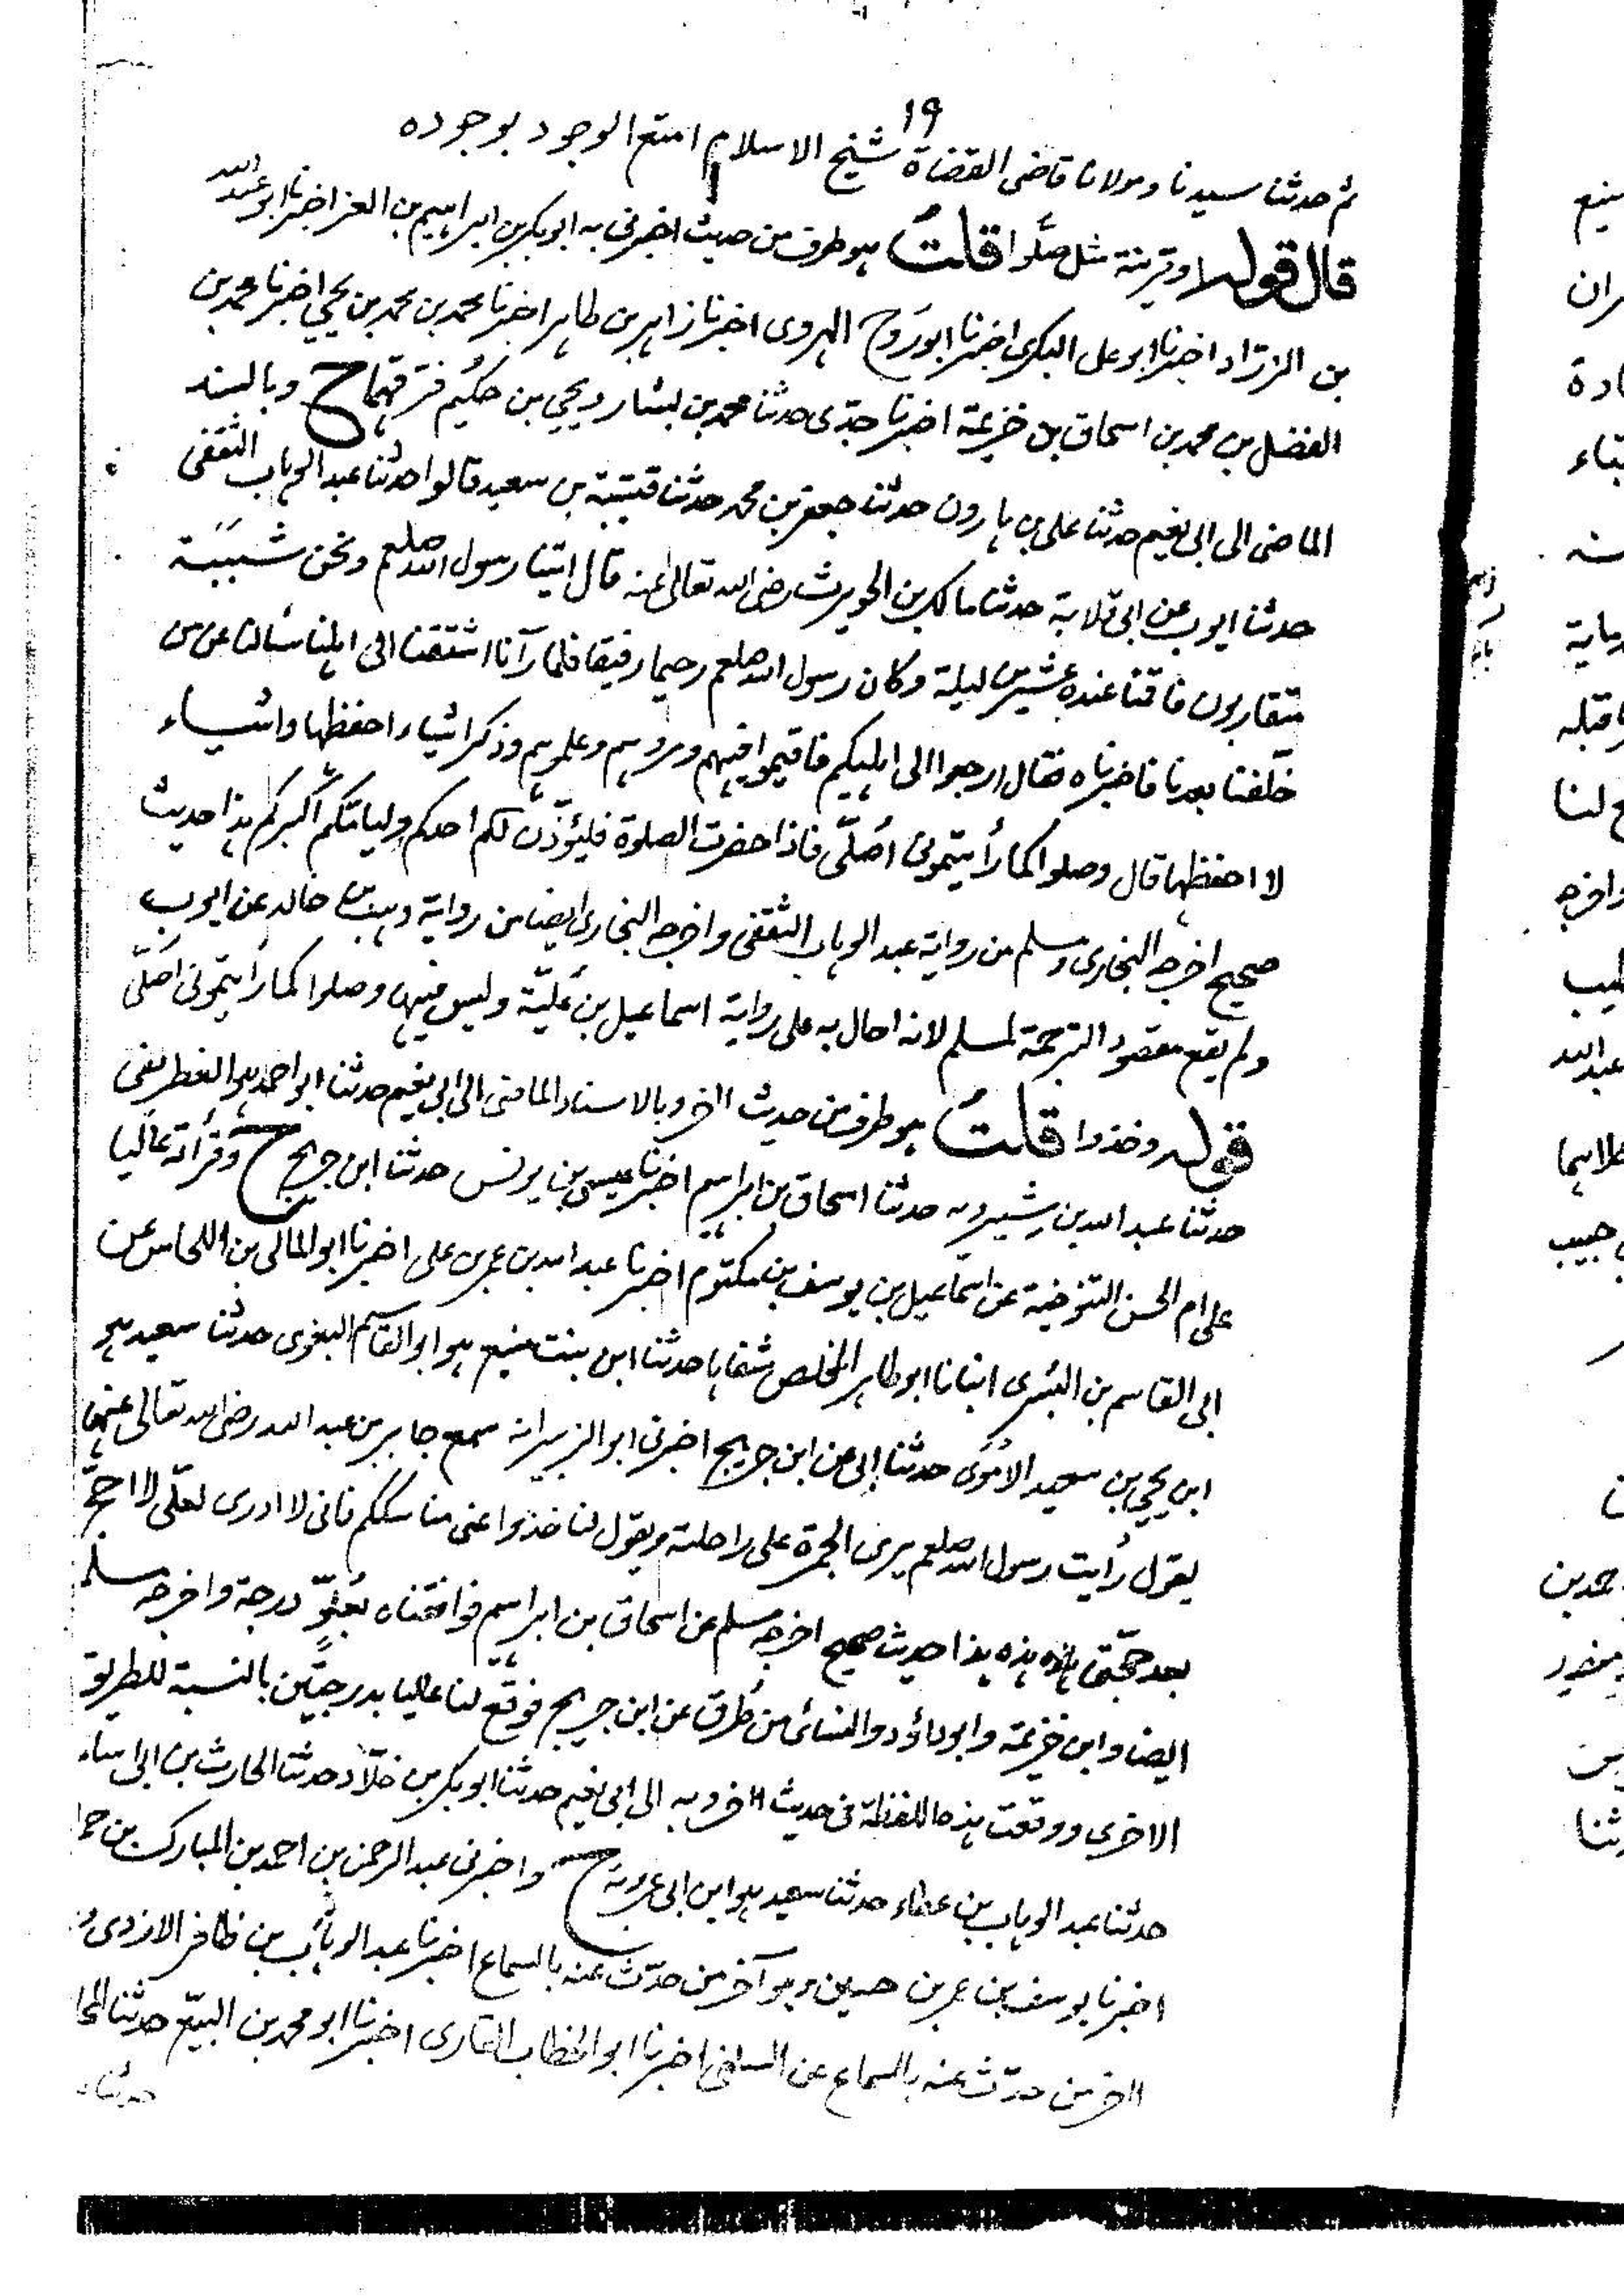 ١٩
ثم حدثنا سيدنا ومولانا قاضى القضاة شيخ الاسلام امتع الوجود بوجوده
قال قوله او قرينة مثل صلّوا قلتُ هو طرف من حديث اخبرنى به ابوبكر بن ابراهيم بن العز اخبرنا ابو عبد الله
بن الزرّاد اخبرنا ابو على البكرى اخبرنا ابو رَوح الهروى اخبرنا زاهر بن طاهر اخبرنا محمد بن محمد بن يحيى اخبرنا محمد بن
الفضل بن محمد بن اسحاق بن خزيمة اخبرنا جدّى حدثنا محمد بن بشار ويحيى بن حكيم فرّقهما ح وبالسند
الماضى الى ابى نعيم حدثنا على بن هارون حدثنا جعفر بن محمد حدثنا قتيبة بن سعيد قالوا حدثنا عبد الوهاب الثقفى
حدثنا ايوب عن ابى قلابة حدثنا مالك بن الحويرث رضى الله تعالى عنه قال اتينا رسول الله صلعم ونحن شَبَبَة
متقاربون فاقمنا عنده عشرين ليلة وكان رسول الله صلعم رحيما رفيقا فلما رآنا اشتقنا الى اهلنا سألنا عن من
خلّفنا بعدنا فاخبرناه فقال ارجعوا الى اهليكم فاقيموا فيهم ومروهم وعلموهم وذكر اشياء احفظها واشياء
لا احفظها قال وصلوا كما رأيتمونى اُصلّى فاذا حضرت الصلوة فليؤذّن لكم احدكم وليامّكم اكبركم هذا حديث
صحيح اخرجه البخارى ومسلم من رواية عبد الوهاب الثقفى واخرجه البخارى ايضا من رواية وهيب بن خالد عن ايوب
ولم يقع مقصود الترجمة لمسلم لانه احال به على رواية اسماعيل بن عُليّة وليس فيها وصلوا كما رأيتمونى اصلّى
قوله وخذوا قلتُ هو طرف من حديث اخر وبالاسناد الماضى الى ابى نعيم حدثنا ابو احمد هو الغطريفى
حدثنا عبد الله بن شيرويه حدثنا اسحاق بن ابراهيم اخبرنا عيسى بن يونس حدثنا ابن جريج ح وقرأته عاليا
على ام الحسن التنوخية عن اسماعيل بن يوسف بن مكتوم اخبرنا عبد الله بن عمر بن على اخبرنا ابو المعالى بن اللحاس عن
ابى القاسم بن البُسْرى انبانا ابو طاهر المخلص شفاها حدثنا ابن بنت منيع هو ابو القاسم البغوى حدثنا سعيد هو
ابن يحيى بن سعيد الاُمَوى حدثنا ابى عن ابن جريج اخبرنى ابو الزبير انه سمع جابر بن عبد الله رضى الله تعالى عنهما
يقول رأيت رسول الله صلعم يرمى الجمرة على راحلته ويقول لنا خذوا عنى مناسككم فانى لا ادرى لعلّى لا احجّ
بعد حجّتى هذه هذا حديث صحيح اخرجه مسلم عن اسحاق بن ابراهيم فوافقناه بعُلوّ درجة واخرجه مسلم
ايضا وابن خزيمة وابوداؤد والنسائى من طُرق عن ابن جريج فوقع لنا عاليا بدرجتين بالنسبة للطريق
الاخرى ووقعت هذه اللفظة فى حديث اخر وبه الى ابى نعيم حدثنا ابوبكر بن خلّاد حدثنا الحارث بن ابى اسامـ
حدثنا عبد الوهاب بن عطاء حدثنا سعيد هو ابن ابى عروبة ح واخبرنى عبد الرحمن بن احمد بن المبارك بن حما
اخبرنا يوسف بن عمر بن حسين وهو آخر من حدّث عنه بالسماع اخبرنا عبد الوهاب بن ظافر الازدى و
اخر من حدّث عنه بالسماع عن السلفى اخبرنا ابو الخطاب القارى اخبرنا ابو محمد بن البيّع حدثنا المحا
حدثنا